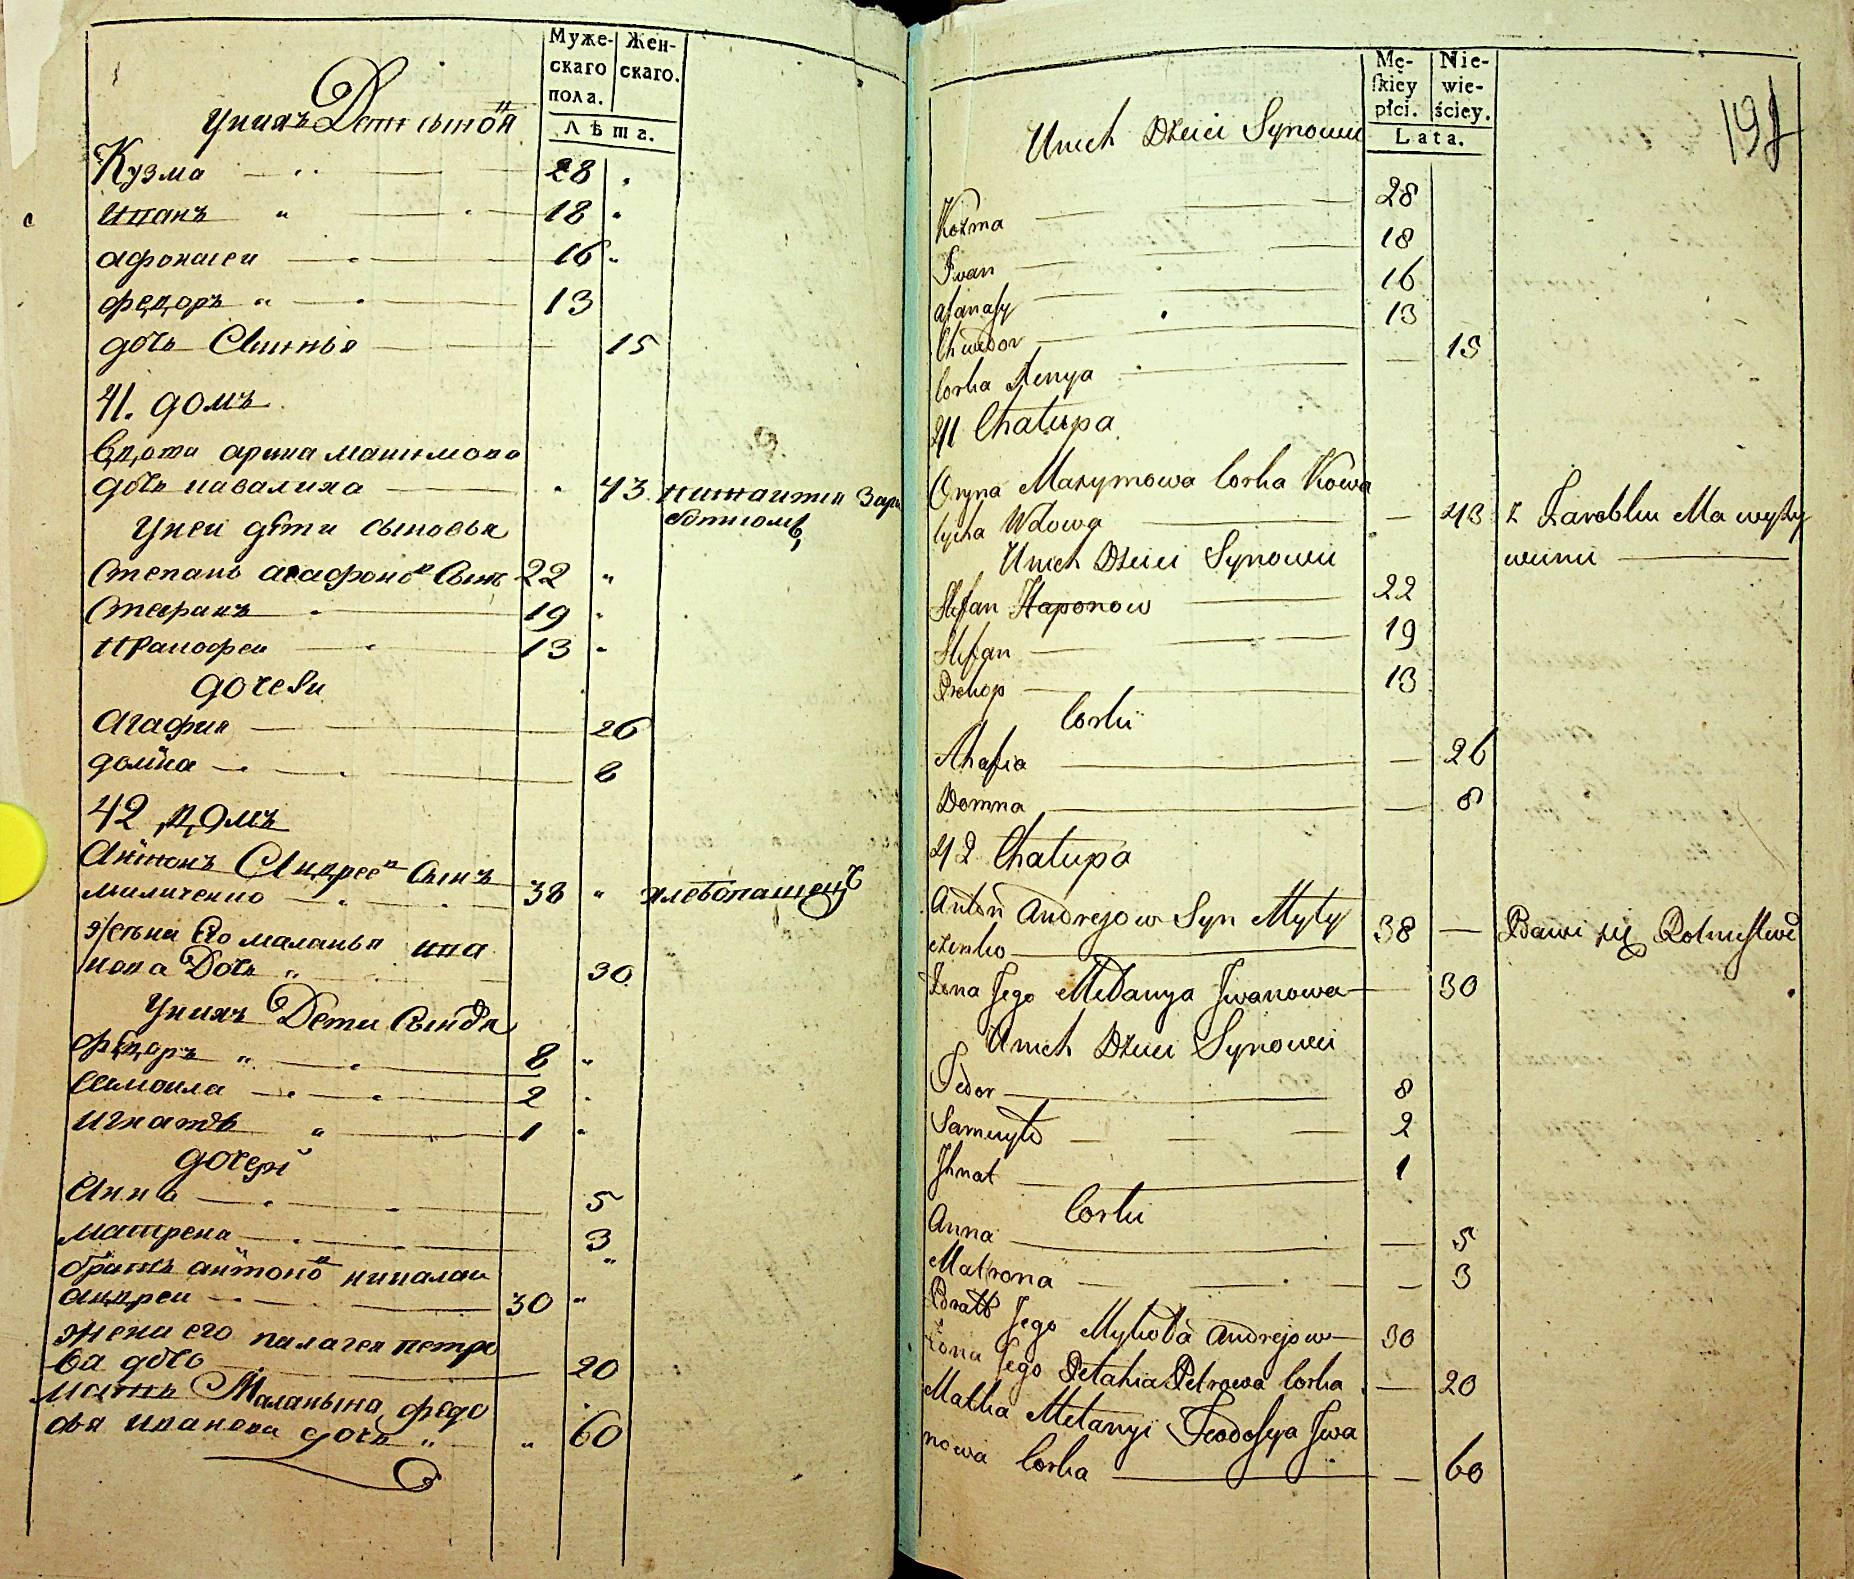 Муже-
скаго
пола.
Жен-
скаго.
Лѣта.
уних Дети сыно'в
Кузма 28
Иванъ 18
афонасеи 16
федоръ 13
дочь 15
41. домъ
вдова арина мацимова
дочь ковалиха 43
Унеи дѣти сыновья
Степанъ агафоно'в Сынъ 22
19
13
дочери
Агафия 26
домна 8
42 домъ
Антонъ Андрее'в Сынъ
миличенко 38 хлебопашецъ
жена Его маланья ива
нова Дочь 30
Уних Дети Сынове
федоръ 8
Самоила 2
игнатъ 1
дочери
Анна 5
матрена 3
братъ антоно'в николаи
андреи 30
жена его палагея петро
ва дочь 20
мать Маланьина федо
сья иванова дочь 60
Mę-
ſkiey
płci.
Nie-
wie-
ściey.
Lata.
198
Unich Dzieci Synowie
Kozma 28
Iwan 18
afanaſy 16
Chwedor 13
Corka Xenya 15
41 Chałupa
Oryna Maxymowa Corka Kowa
lycha Wdowa 43 z Zarobku Ma wyży
wienie
Unich Dzieci Synowie
Stefan Haponow 22
Stefan 19
Prokop 13
Corki
Ahafia 26
Domna 8
42 Chałupa
Anton Andrejow Syn Myły
czenko 38 Bawi się Rolnictwe
Zona Jego Mełanya Jwanowa 30
Unich Dzieci Synowie
Fedor 8
Samuyło 2
Jhnat 1
Corki
Anna 5
Matrona 3
Bratt Jego Mykoła Andrejow 30
Zona Jego Pełahia Petrowa Corka 20
Matka Mełanyi Feodoſya Jwa
nowa Corka 60